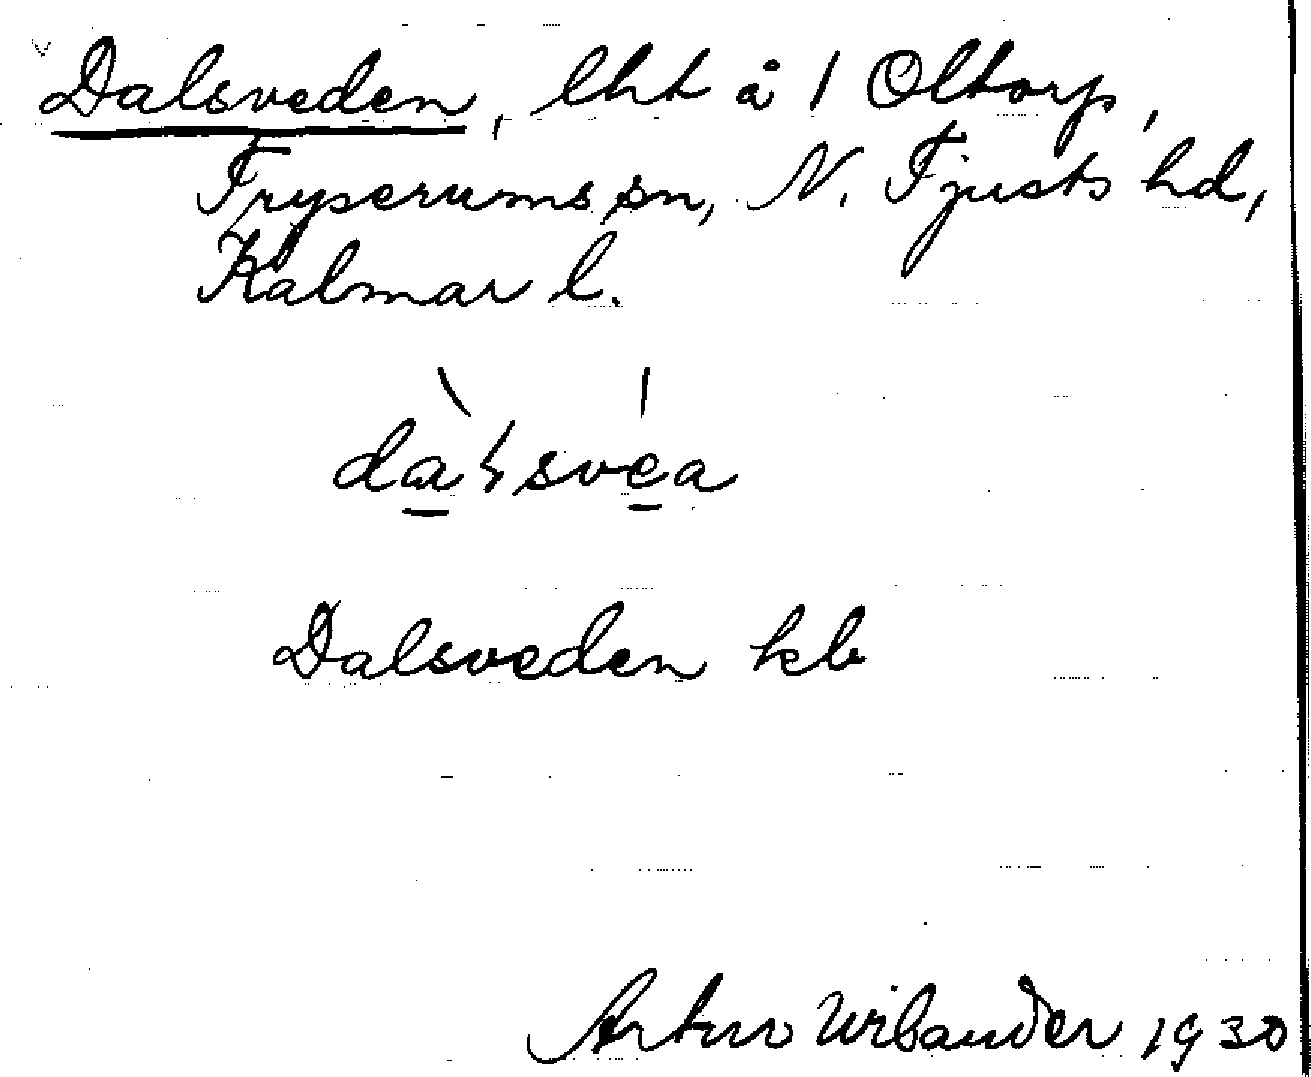 Dalsveden, lht å 1 Oltorp,
Tryserums sn, N. Tjusts hd,
Kalmar l.
dàḷsvéa
Dalsveden kb
Artur Wilander 1930